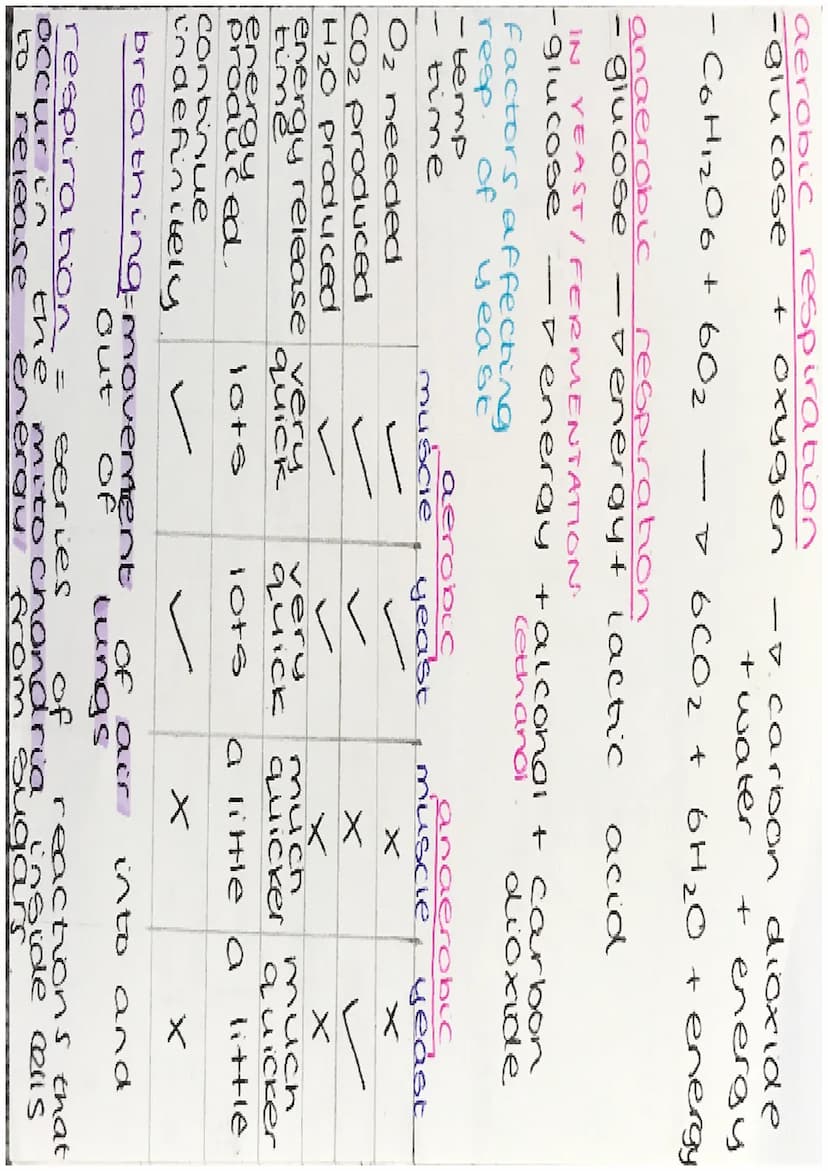 aerobic respiration
-glucose + oxygen → carbon dioxide
+ water + energy
- C6H12O6 + 6O2 → 6CO2 + 6H2O + energy
anaerobic respiration
-glucose → energy + lactic acid
IN YEAST / FERMENTATION:
-glucose → energy + alcohol + carbon
(ethanol) dioxide
factors affecting
resp. of yeast
-temp
- time
aerobic anaerobic
muscle yeast muscle yeast
O2 needed ✓ ✓ x x
CO2 produced ✓ ✓ x ✓
H2O produced ✓ ✓ x x
energy release very very much much
time quick quick quicker quicker
energy
produced. lots lots a little a little
continue
indefinitely ✓ ✓ x x
breathing = movement of air into and
out of lungs
respiration = series of reactions that
occur in the mitochondria inside cells
to release energy from sugars